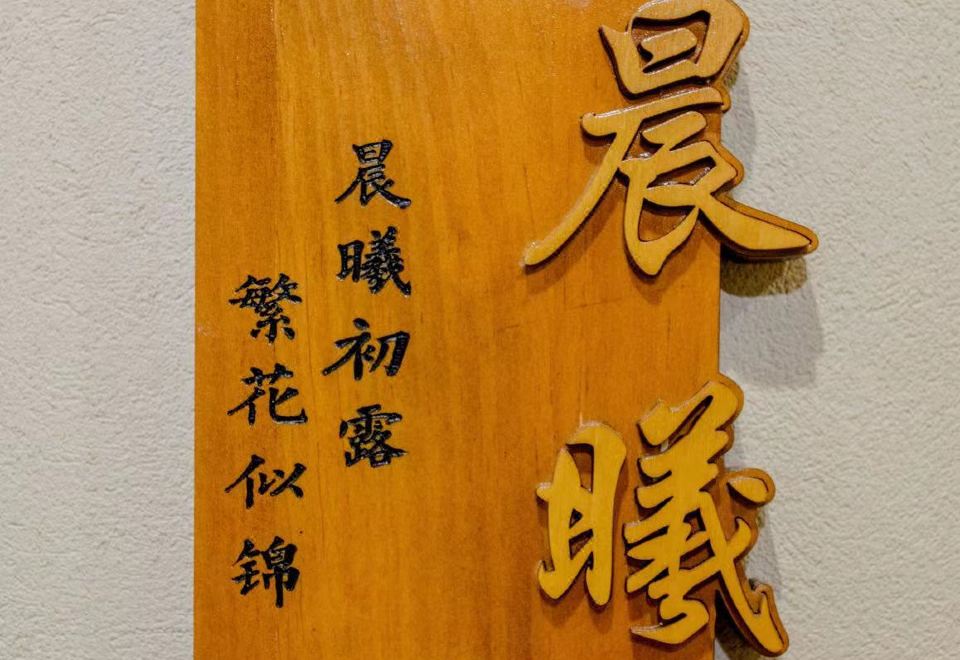 晨曦
晨曦初露
繁花似锦